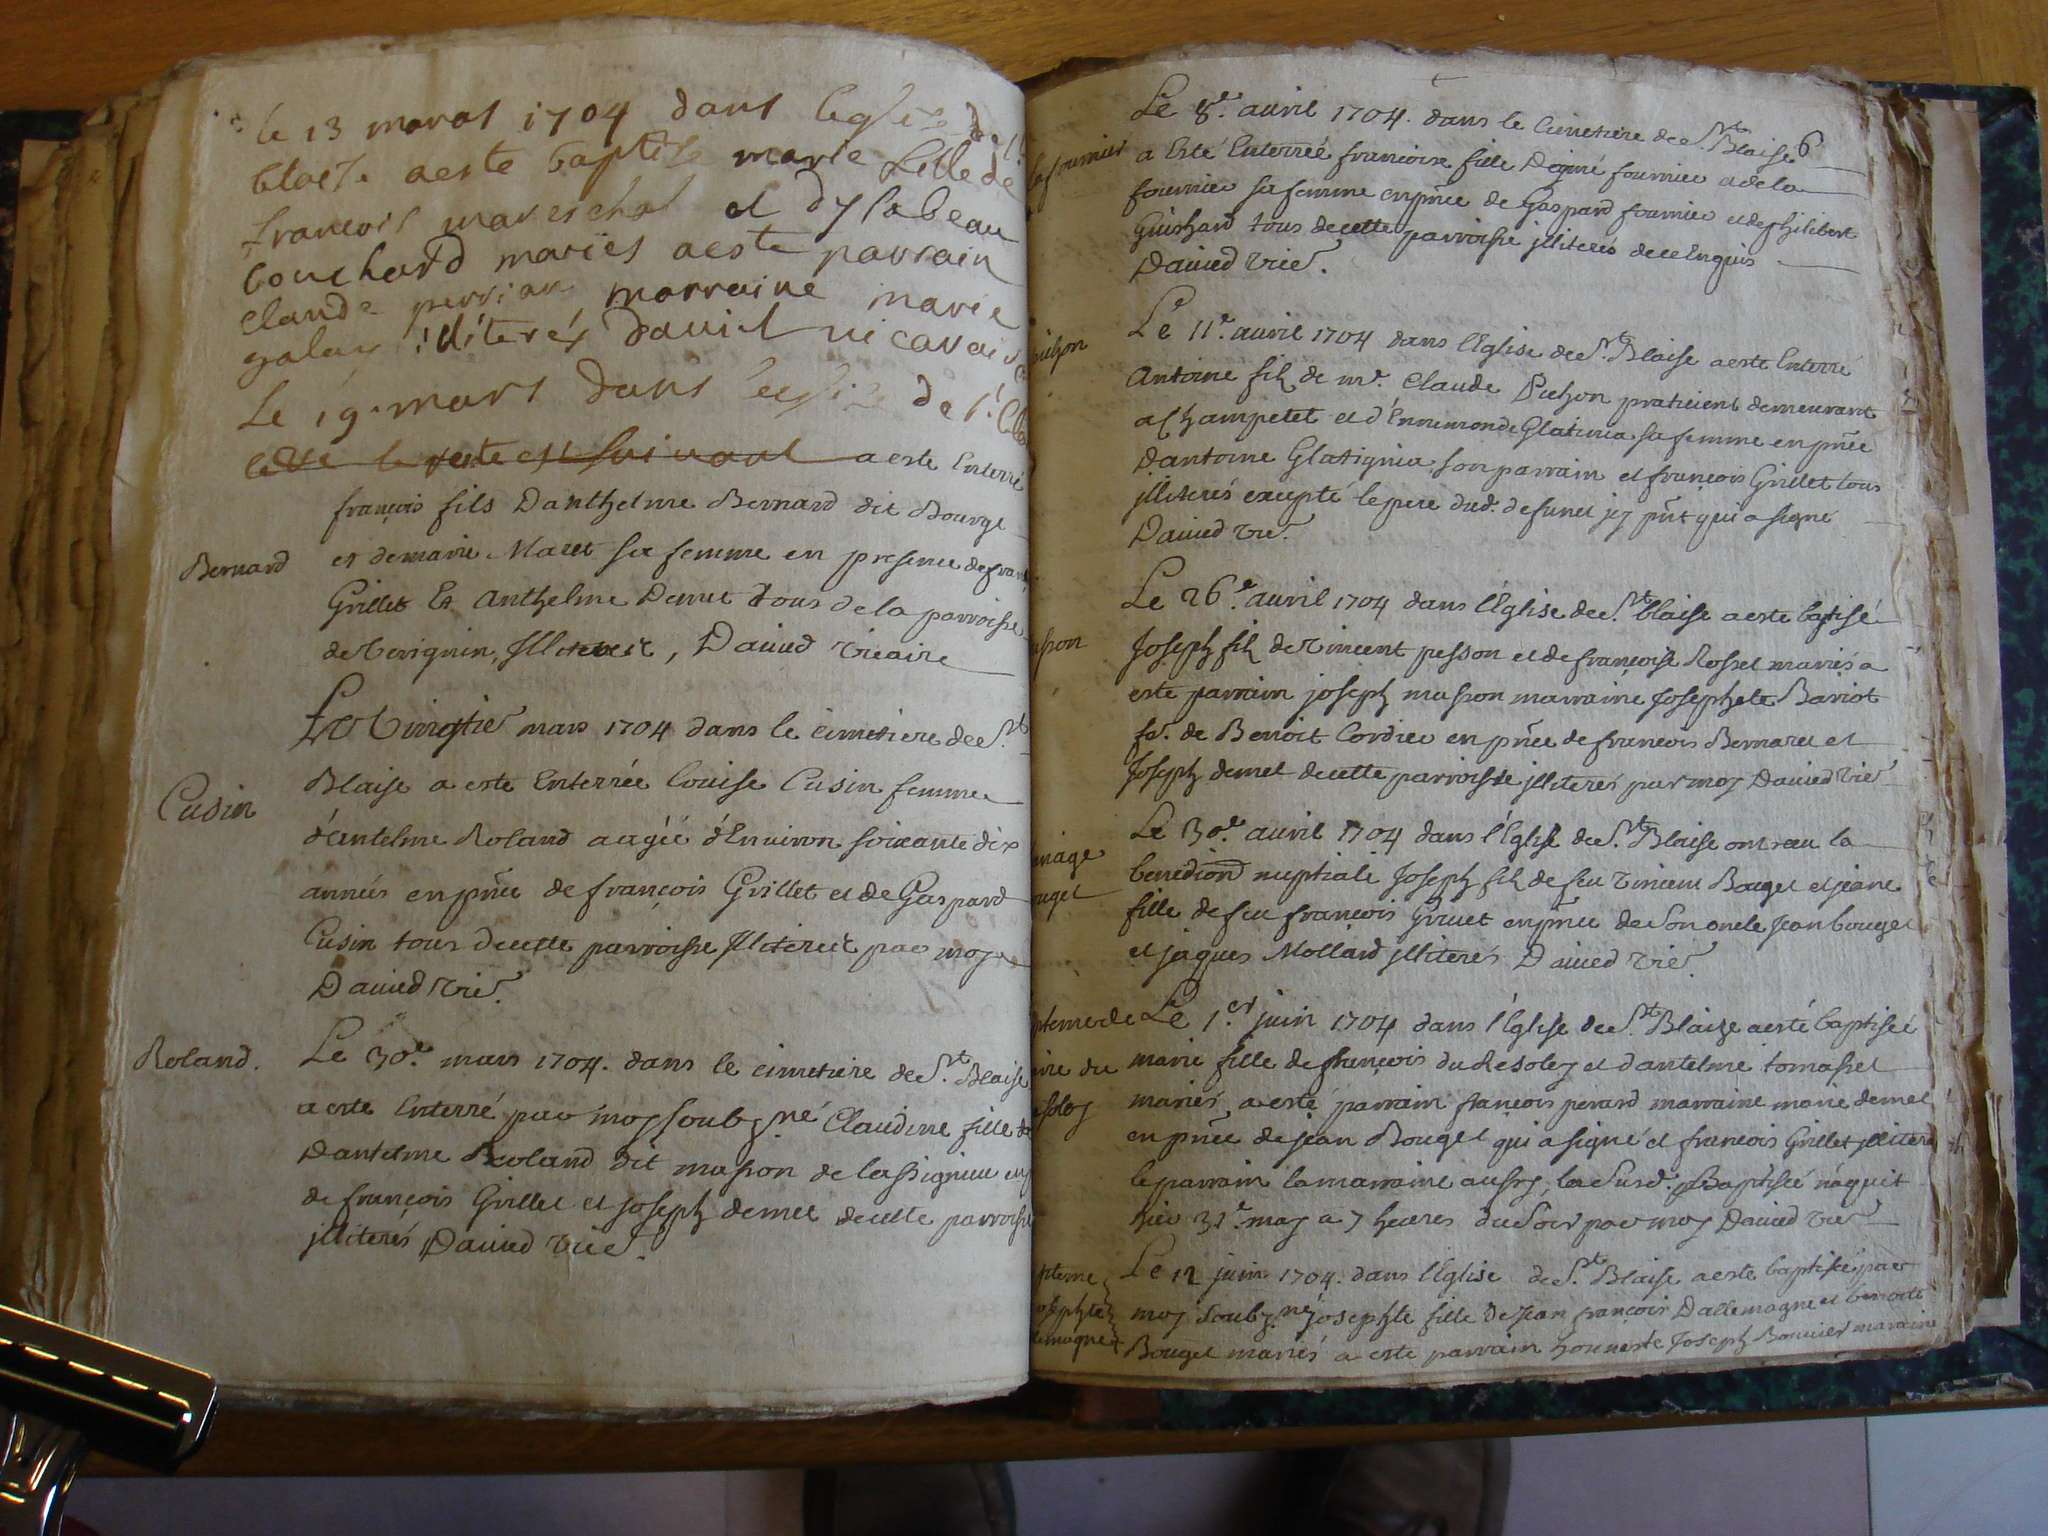 le 13 marcs 1704 dans leglise de st
blaise a este baptise marie fille de
francois mareschal et dysabeau
bouchard mariés a este parrain
claude perrian marraine marie
galay illiterés Dauied vicaire
Le 19. mars dans leglise de st. bla
le reste est suivant a este Enterré
françois fils Danthelme Bernard dit Bourge
Bernard et de marie Maret sa femme en presence de fran
Grillet Et Anthelme Demet tous de la parroisse
de Virignin Illiterez, Dauied vicaire
Le Vingtie mars 1704 dans le cimetiere de St
Blaise a este Enterrée Louise Cusin femme
Cusin
d'antelme Roland aagée d'Enuiron soixante dix
années en pnce de françois Grillet et de Gaspard
Cusin tous decette parroisse Illiterez par moy
Dauied vire.
Roland. Le 30e mars 1704. dans le cimetiere de St. Blaise
a este Enterré par moy soubzné Claudine fille de
Dantelme Roland dit masson de lassignieu en
de françois Grillet et Joseph demet decette parroisse
jlliterés Dauied vire.
6
Le 8e. auril 1704. dans le Cimetiere de St. Blaise
la fournier a Esté Enterreé francoise fille Daimé fournier a de la
fournier sa femme en pnce de Gaspard fournier et de philibert
Guishard tous de cette parroisse jlliterés de ce Enquis
Dauied vire.
Le 11e. auril 1704 dans l'Eglise de St. Blaise a este Enterré
Antoine fils de mr. Claude Pichon praticient demeurant
a Champetet et d'Ennemonde Glatinia sa femme en pnce
Dantoine Glatignia son parrain et françois Grillet tous
jlliterés excepté le pere dud. defunct jcy pnt qui a signé
Dauied vire.
Le 26e. auril 1704 dans l'Eglise de St. blaise a este baptisé
Joseph fils de Vincent pesson et de francoise Rosset mariés a
este parrain joseph masson marraine Josephete Barriot
fe. de Benoit Cordier en pnce de francois Bernard et
Joseph demet de cette parroisse jlliterés par moy Dauied vire
Le 30e auril 1704 dans l'Eglise de St. Blaise ont receu la
benediond nuptiale Joseph fils de feu Vincent Bouget et jeane
fille de feu francois Gruet en pnce de Son oncle Jean bouget
et jaques Mollard jlliterés Dauied vire.
Le 1.er juin 1704 dans l'Eglise de St. Blaise a esté baptiseé
marie fille de françois du Resoley et dantelme tomasset
mariés a esté parrain françois perard marraine marie demet
en pnce de jean Bouget qui a signé et francois Grillet jllitere
le parrain la marraine aussy, la Susd. Baptisée náquit
hier 31e. may a 7 heures du Soir par moy Dauied vire
Le 12 juin 1704. dans l'Eglise de St. Blaise a este baptisée par
moy Soubzné josephte fille de Jean françois Dallemagne et benoite
Bouget mariés a este parrain honneste Joseph Bouuier marraine